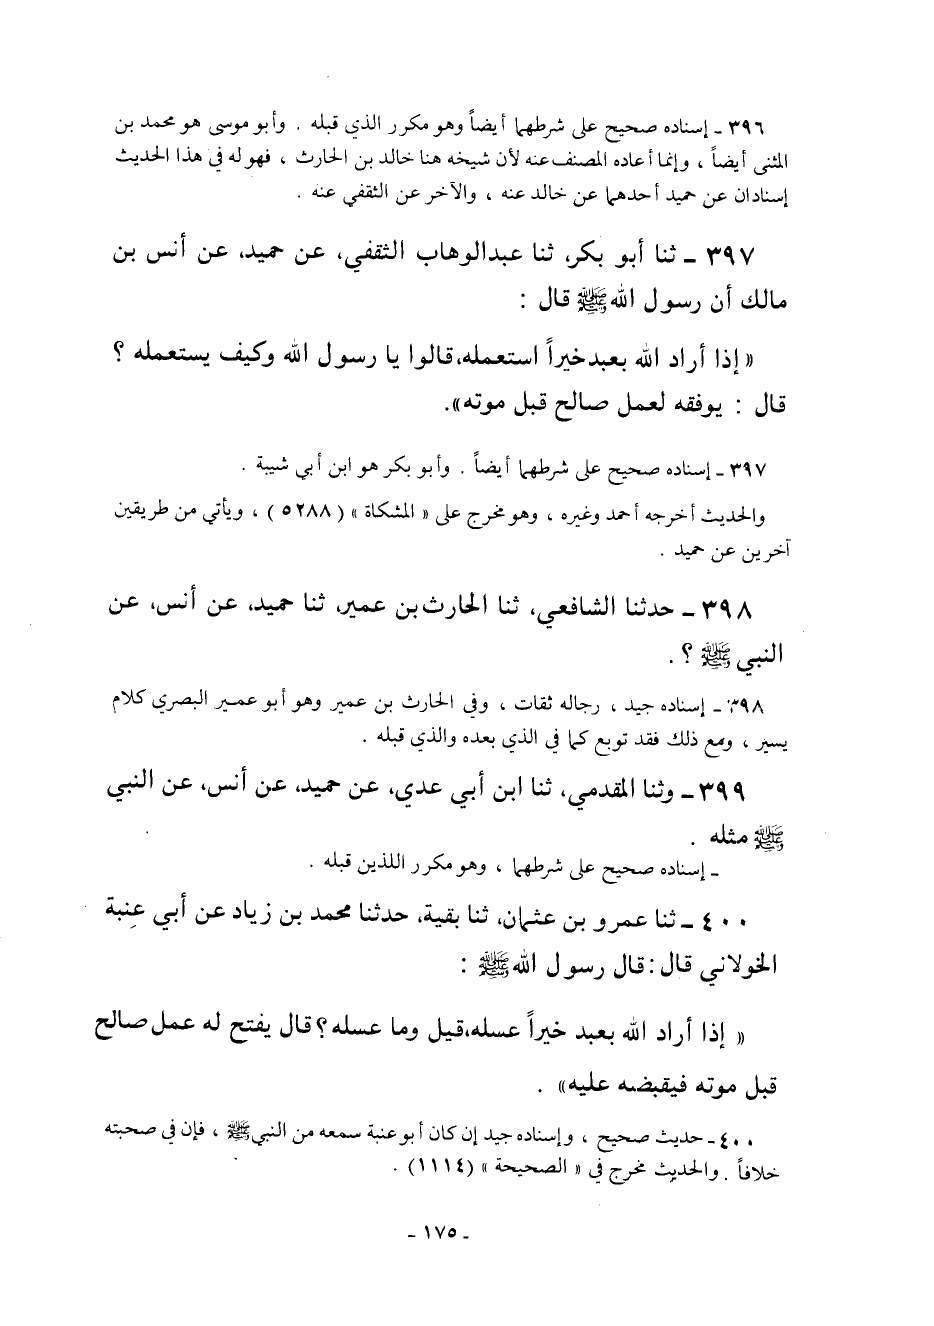 ٣٩٦ ـ إسناده صحيح على شرطهما أيضاً وهو مكرر الذي قبله . وأبو موسى هو محمد بن
المثنى أيضاً ، وإنما أعاده المصنف عنه لأن شيخه هنا خالد بن الحارث ، فهو له في هذا الحديث
إسنادان عن حميد أحدهما عن خالد عنه ، والآخر عن الثقفي عنه .
٣٩٧ ـ ثنا أبو بكر، ثنا عبدالوهاب الثقفي، عن حميد، عن أنس بن
مالك أن رسول الله ﷺ قال :
« إذا أراد الله بعبد خيراً استعمله، قالوا يا رسول الله وكيف يستعمله ؟
قال : يوفقه لعمل صالح قبل موته».
٣٩٧ ـ إسناده صحيح على شرطهما أيضاً . وأبو بكر هو ابن أبي شيبة .
والحديث أخرجه أحمد وغيره ، وهو مخرج على « المشكاة » ( ٥٢٨٨ ) ، ويأتي من طريقين
آخرين عن حميد .
٣٩٨ ـ حدثنا الشافعي، ثنا الحارث بن عمير، ثنا حميد، عن أنس، عن
النبي ﷺ ؟ .
٣٩٨ ـ إسناده جيد ، رجاله ثقات ، وفي الحارث بن عمير وهو أبو عمير البصري كلام
يسير ، ومع ذلك فقد توبع كما في الذي بعده والذي قبله .
٣٩٩ ـ وثنا المقدمي، ثنا ابن أبي عدي، عن حميد، عن أنس، عن النبي
ﷺ مثله .
ـ إسناده صحيح على شرطهما ، وهو مكرر اللذين قبله .
٤٠٠ ـ ثنا عمرو بن عثمان، ثنا بقية، حدثنا محمد بن زياد عن أبي عِنبة
الخولاني قال : قال رسول الله ﷺ :
« إذا أراد الله بعبد خيراً عسله، قيل وما عسله؟ قال يفتح له عمل صالح
قبل موته فيقبضه عليه» .
٤٠٠ ـ حديث صحيح ، وإسناده جيد إن كان أبو عنبة سمعه من النبي ﷺ ، فإن في صحبته
خلافاً . والحديث مخرج في « الصحيحة » (١١١٤) .
ـ ١٧٥ ـ